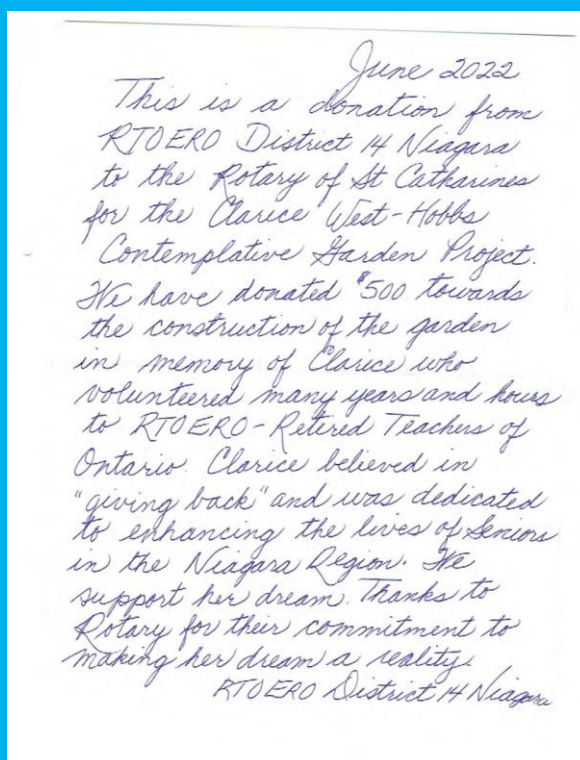 June 2022
This is a donation from
RTOERO District 14 Niagara
to the Rotary of St Catharines
for the Clarice West-Hobbs
Contemplative Garden Project.
We have donated $500 towards
the construction of the garden
in memory of Clarice who
volunteered many years and hours
to RTOERO-Retired Teachers of
Ontario. Clarice believed in
"giving back" and was dedicated
to enhancing the lives of Seniors
in the Niagara Region. We
support her dream. Thanks to
Rotary for their commitment to
making her dream a reality.
RTOERO District 14 Niagara